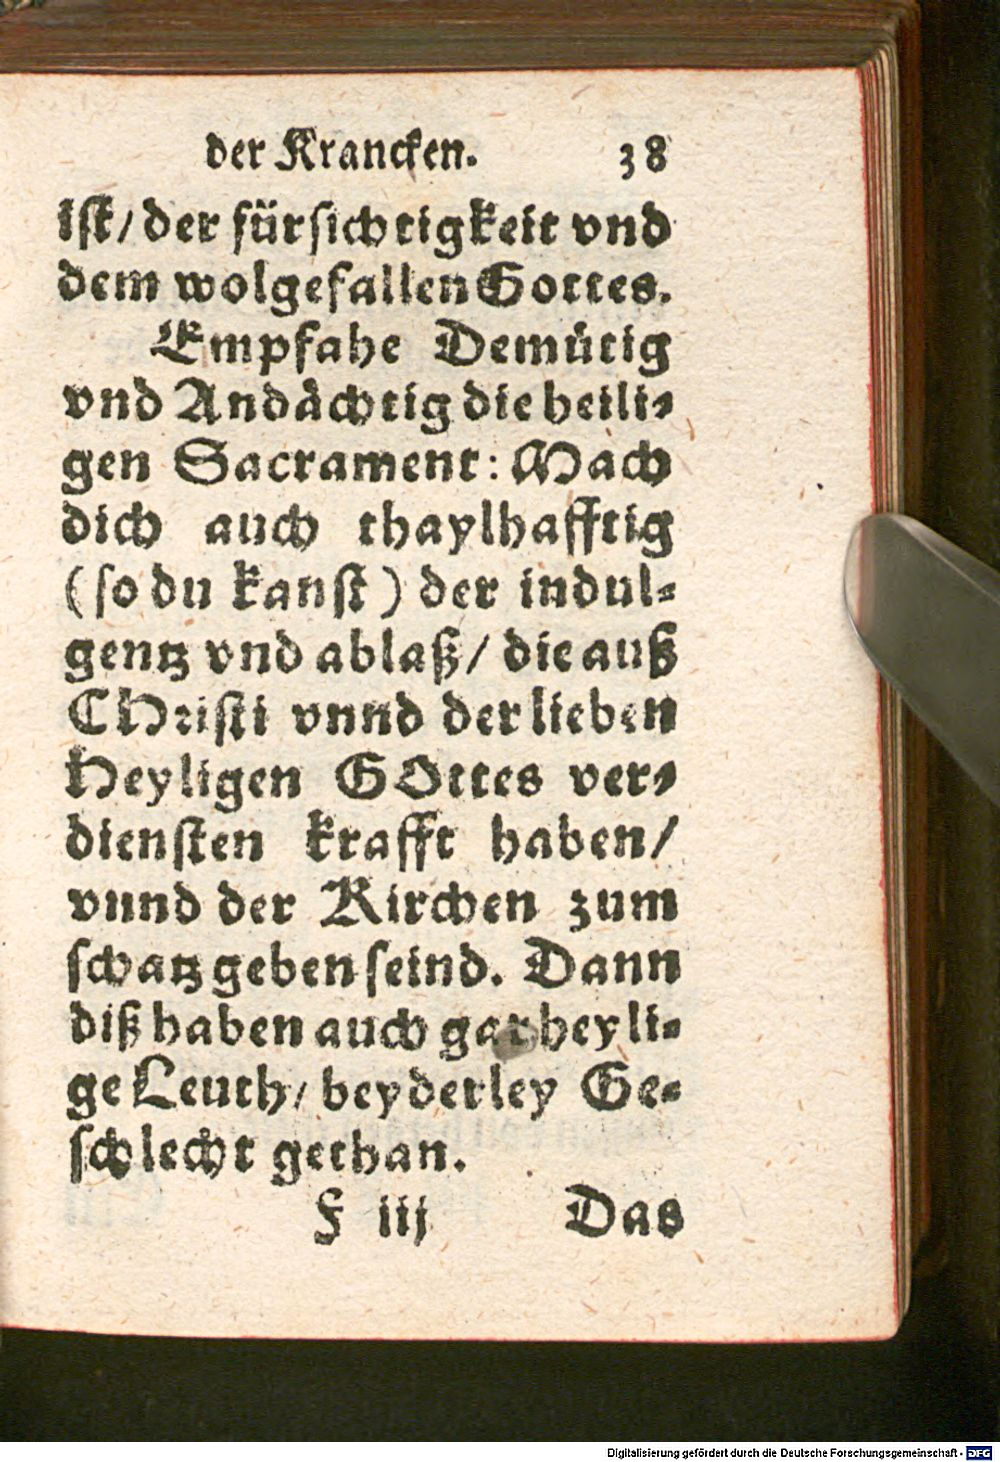 der Krancken. 38
ist/ der fürsichtigkeit vnd
dem wolgefallen Gottes.
Empfahe Demütig
vnd Andächtig die heili⸗
gen Sacrament: Mach
dich auch thaylhafftig
(so du kanst) der indul⸗
gentz vnd ablaß/ die auß
CHristi vnnd der lieben
Heyligen GOttes ver⸗
diensten krafft haben/
vnnd der Kirchen zum
schatz geben seind. Dann
diß haben auch gar heyli⸗
ge Leuth/ beyderley Ge⸗
schlecht gethan.
F iij Das
Digitalisierung gefördert durch die Deutsche Forschungsgemeinschaft - DFG